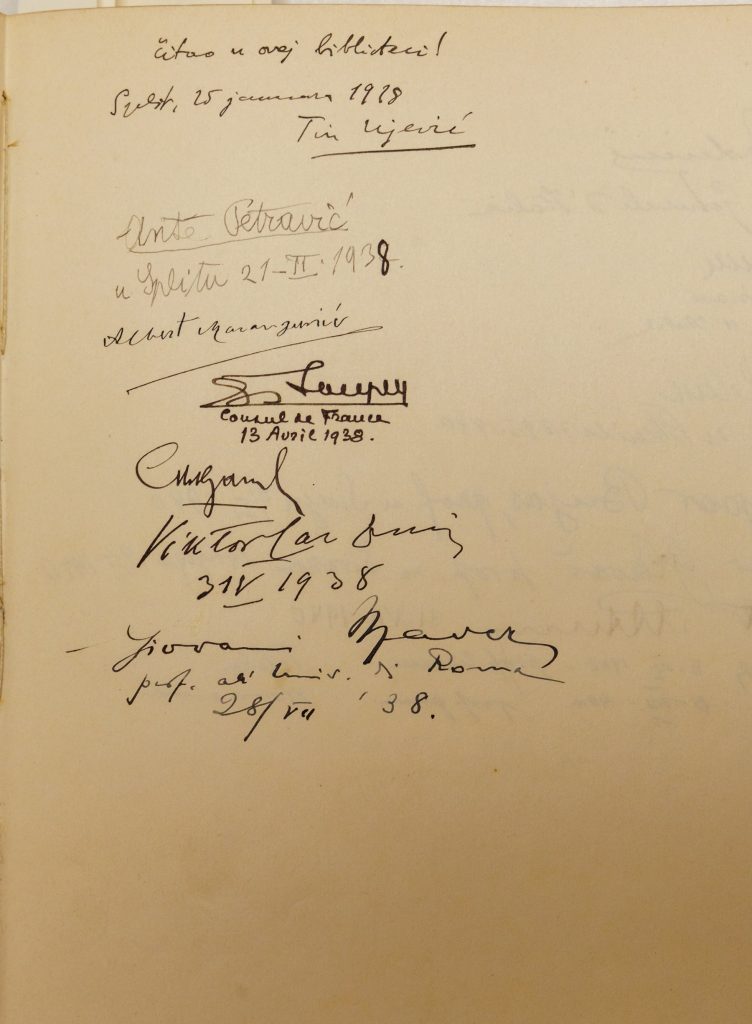 čitao u ovoj biblioteci!
Split, 25 januara 1938
Tin Ujević
Ante Petravić
u Splitu 21-II-1938.
Albert
Consul de France
13 Avril 1938.
Viktor Car Emin
3 IV 1938
Giovanni Maver
prof. all' Univ. di Roma
28/VII '38.